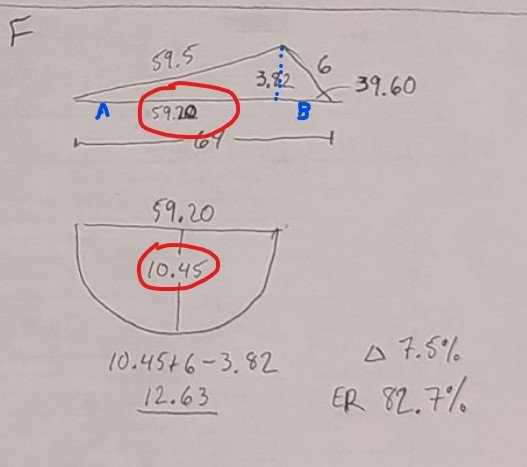 F
59.5
6
3.82
39.60
A
59.20
B
64
59.20
10.45
10.45+6-3.82
12.63
Δ 7.5%
ER 82.7%